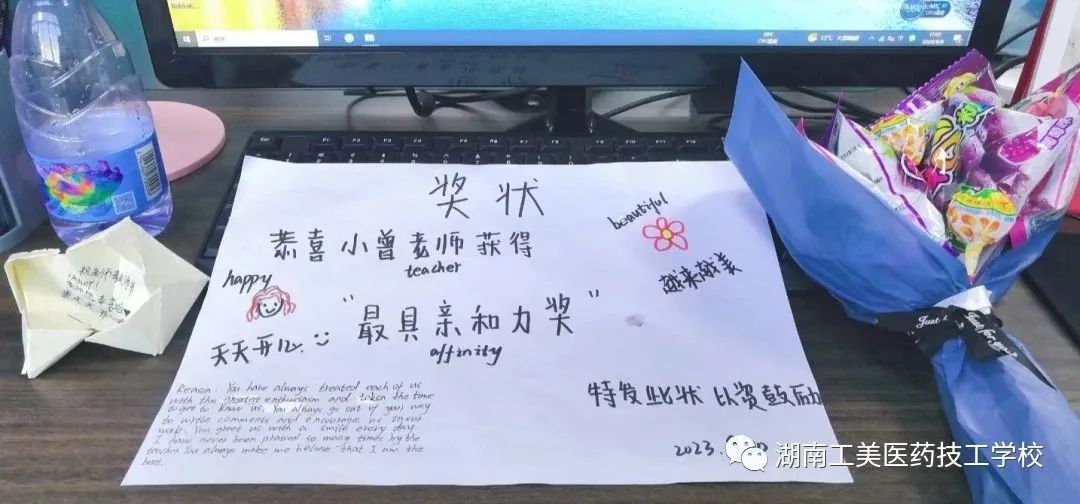 奖状
恭喜小曾老师获得
teacher
beautiful
越来越美
happy
"最具亲和力奖"
affinity
天天开心
Reason. You have always treated each of us
with the greatest enthusiasm and taken the time
to get to know us. You always go out of your way
to write comments and encourage us in our
work. You greet us with a smile every day.
I have never been praised so many times by the
teacher. You always make me believe that I am the
best.
特发此状 以资鼓励
2023.
湖南工美医药技工学校